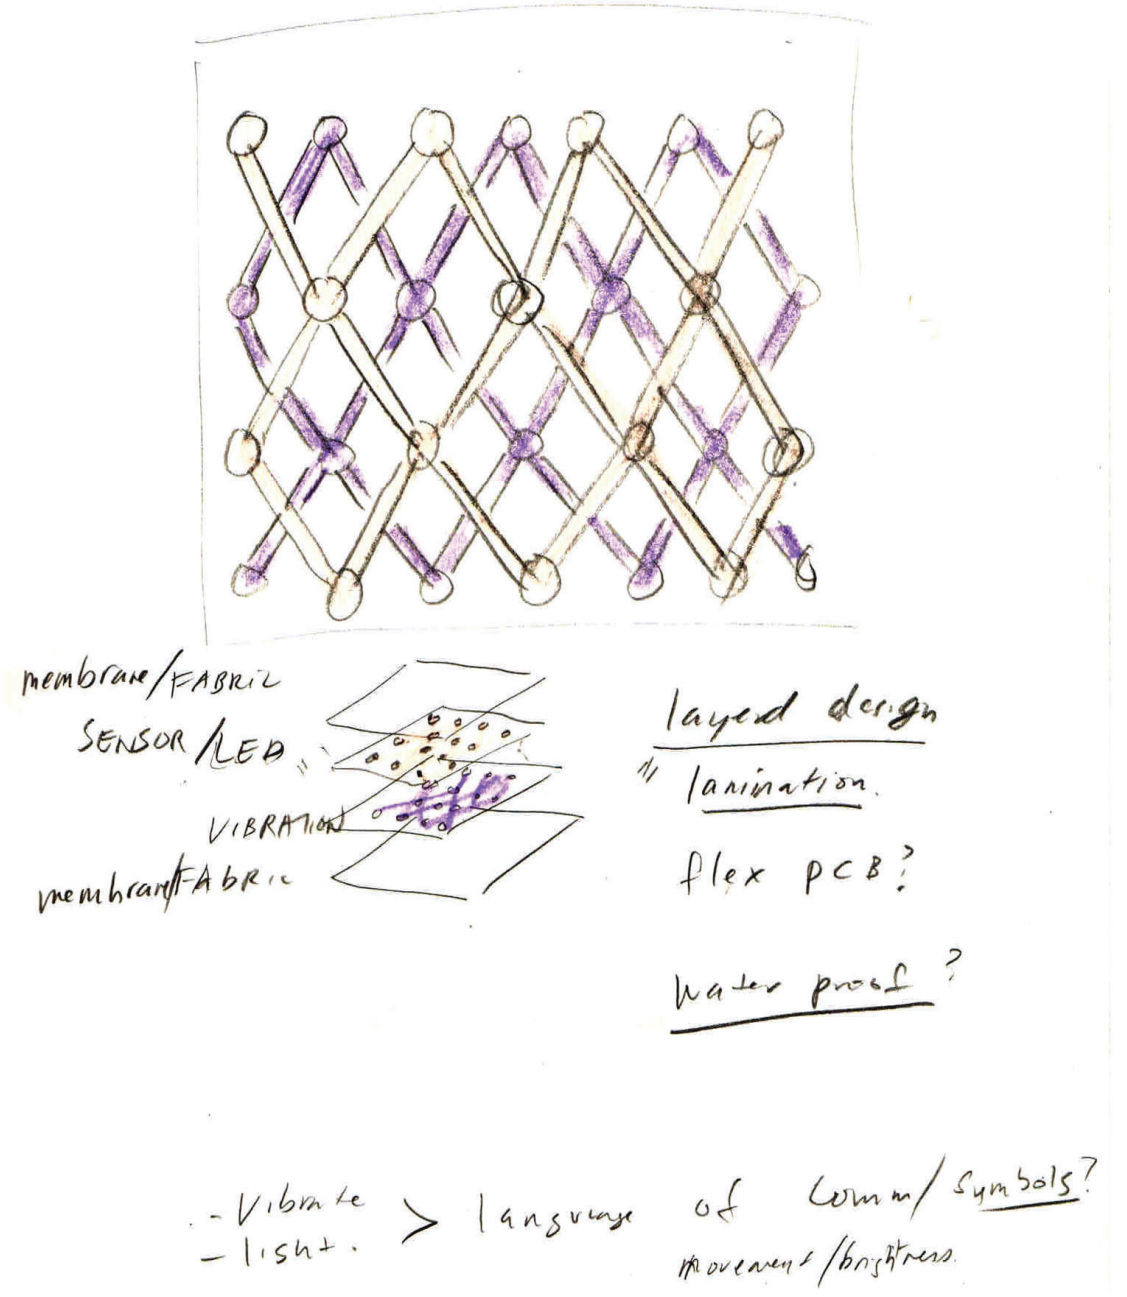 membrane/FABRIC
SENSOR/LED
VIBRATION
membrane/FAbRic
layerd design
" lamination.
flex PCB?
water proof?
- Vibrate
- light.
> language of comm/symbols?
movement/brightness.